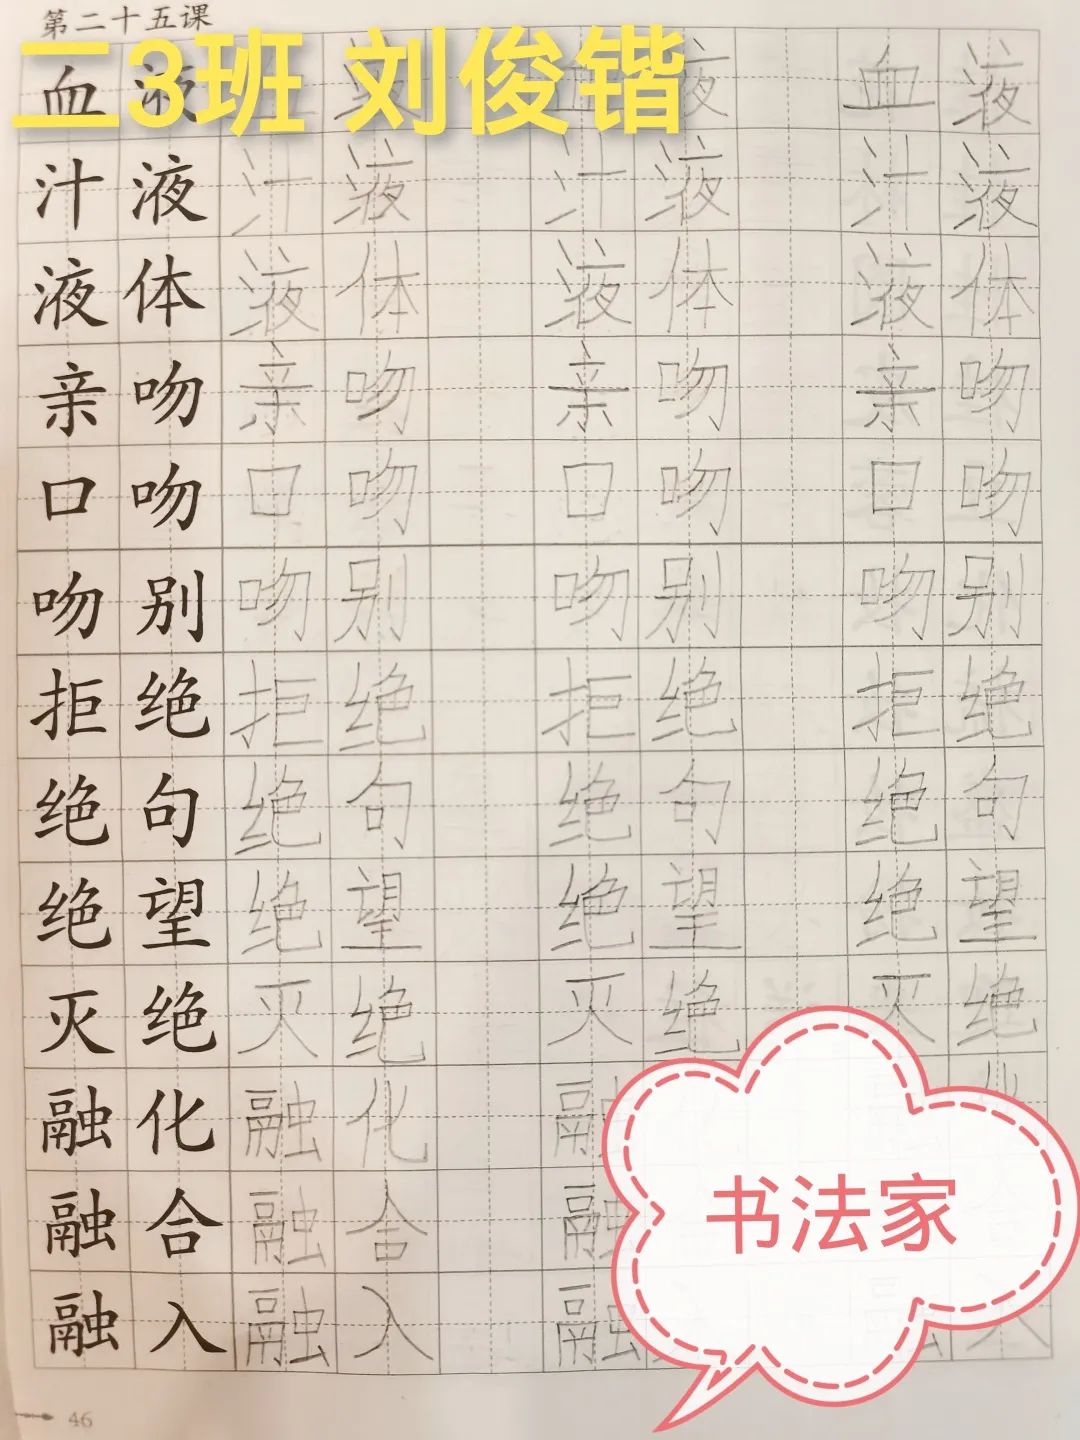 第二十五课
二3班 刘俊锴
血 液 血 液 血 液 血 液
汁 液 汁 液 汁 液 汁 液
液 体 液 体 液 体 液 体
亲 吻 亲 吻 亲 吻 亲 吻
口 吻 口 吻 口 吻 口 吻
吻 别 吻 别 吻 别 吻 别
拒 绝 拒 绝 拒 绝 拒 绝
绝 句 绝 句 绝 句 绝 句
绝 望 绝 望 绝 望 绝 望
灭 绝 灭 绝 灭 绝 灭 绝
融 化 融 化 融 化
融 合 融 合 融
融 入 融 入 融 融 入
书法家
46